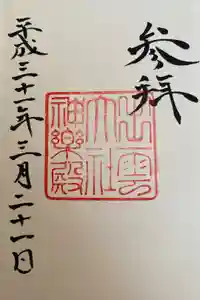 参拝
出雲
大社
神樂殿
平成三十一年三月二十一日